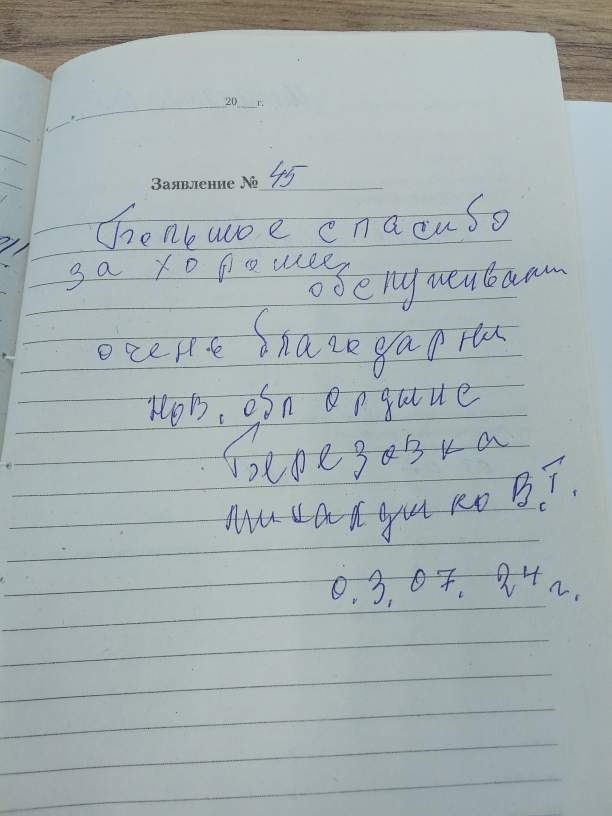 20 г.
Заявление № 45
Большое спасибо
за хорошее
обслуживан
очень благодарны
Нов. обл Ордынс
Березовка
В.Т.
0.3.07.24 г.